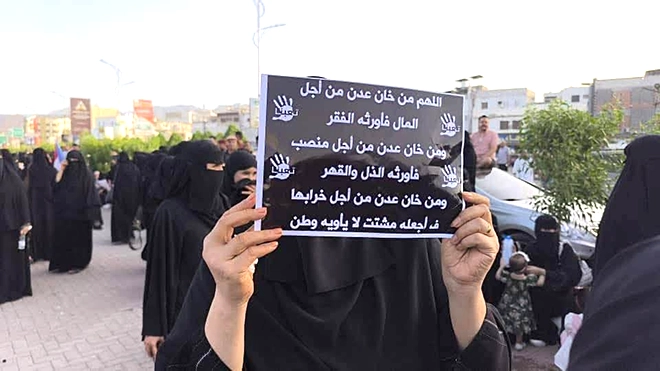 اللهم من خان عدن من أجل
المال فأورثه الفقر
ومن خان عدن من أجل منصب
فأورثه الذل والقهر
ومن خان عدن من أجل خرابها
ف أجعله مشتت لا يأويه وطن
تعبنا
تعبنا
تعبنا
تعبنا